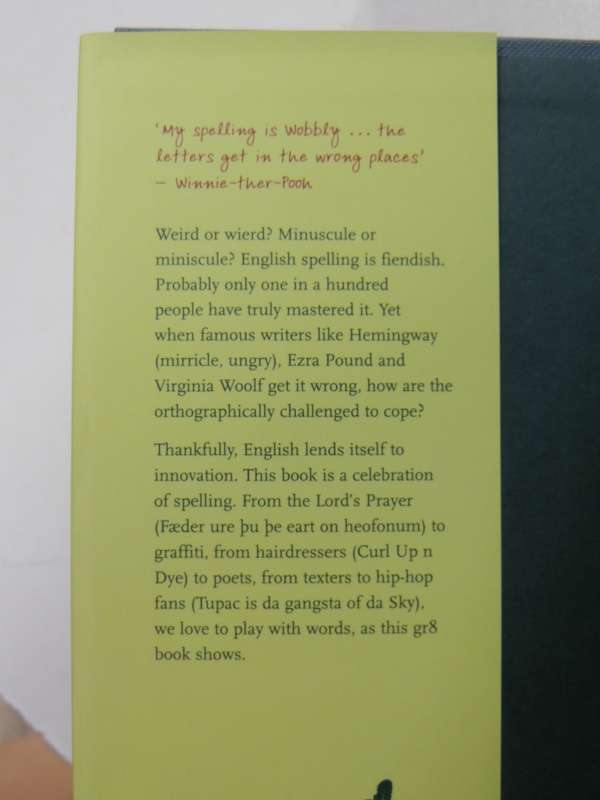 'My spelling is Wobbly ... the
letters get in the wrong places'
– Winnie-ther-Pooh
Weird or wierd? Minuscule or
miniscule? English spelling is fiendish.
Probably only one in a hundred
people have truly mastered it. Yet
when famous writers like Hemingway
(mirricle, ungry), Ezra Pound and
Virginia Woolf get it wrong, how are the
orthographically challenged to cope?
Thankfully, English lends itself to
innovation. This book is a celebration
of spelling. From the Lord's Prayer
(Fæder ure þu þe eart on heofonum) to
graffiti, from hairdressers (Curl Up n
Dye) to poets, from texters to hip-hop
fans (Tupac is da gangsta of da Sky),
we love to play with words, as this gr8
book shows.